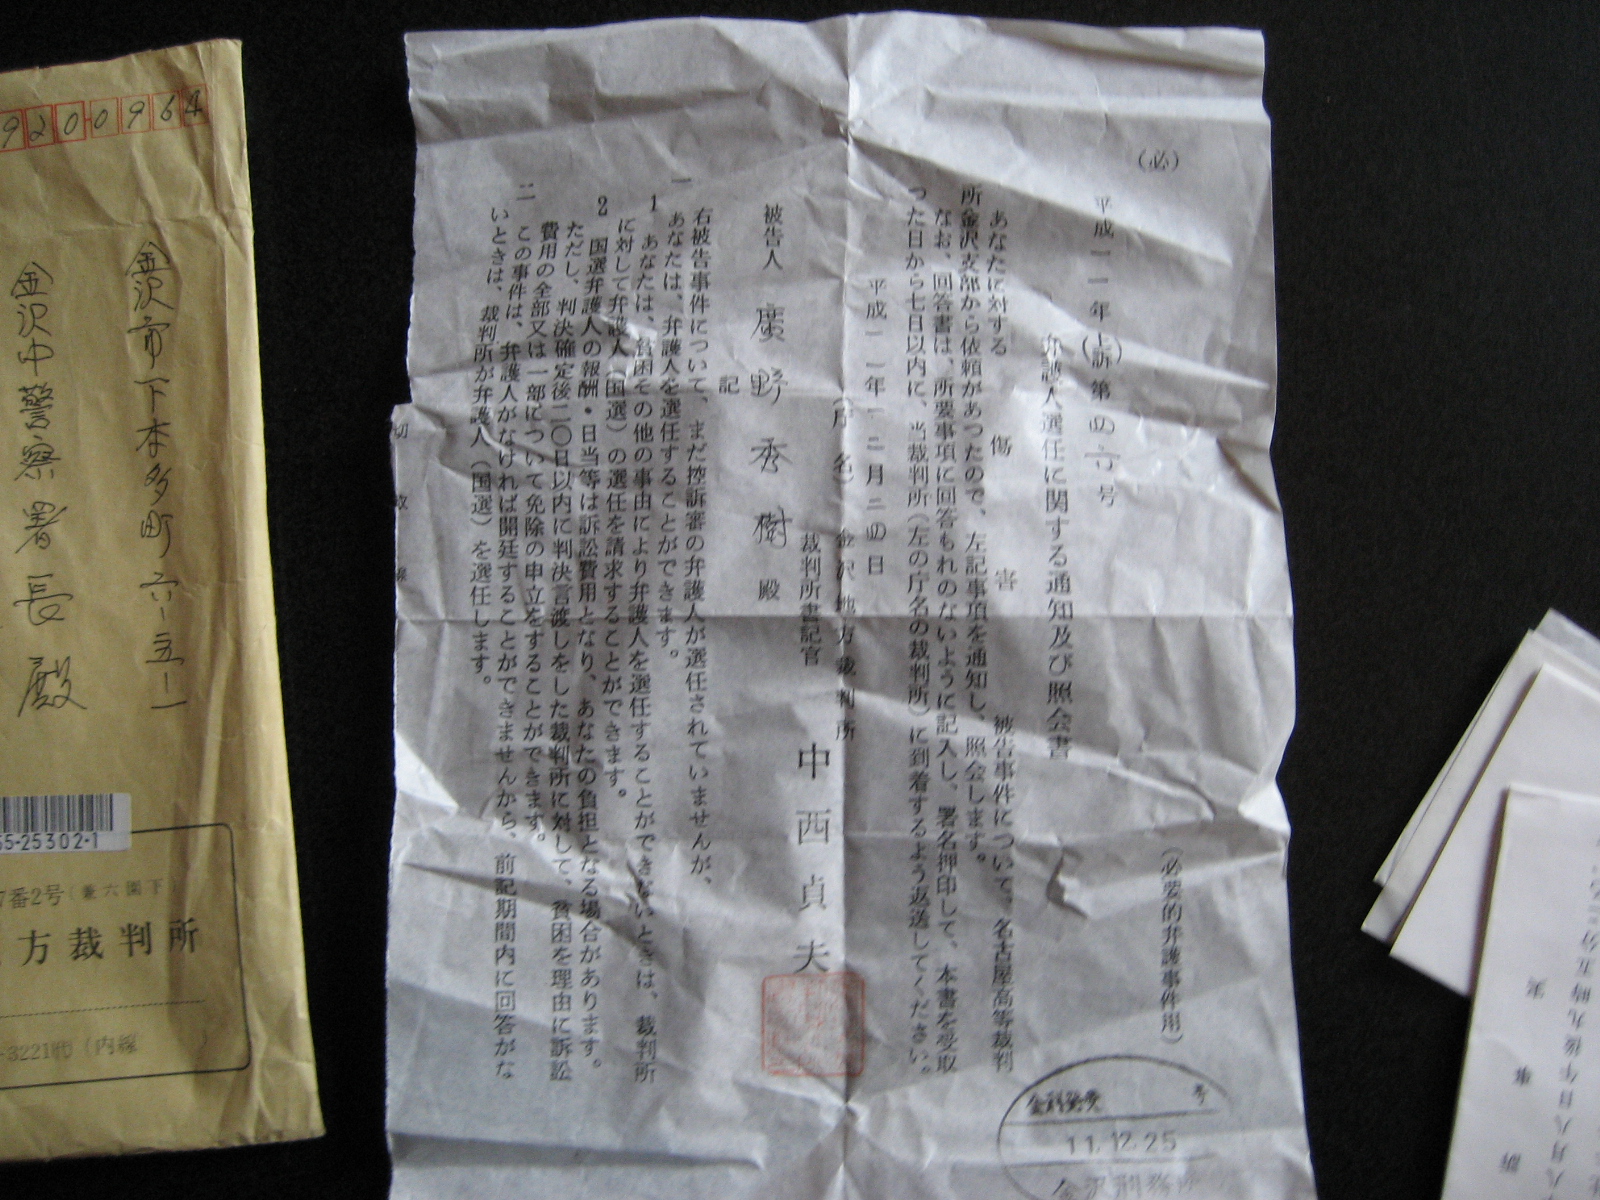 9200964
金沢市下本多町六-五-一
金沢中警察署長殿
55-25302-1
7番2号(兼六園下)
方裁判所
-3221㈹(内線 )
(必)
平成一一年(上訴)第四六号
弁護人選任に関する通知及び照会書
(必要的弁護事件用)
あなたに対する 傷害 被告事件について、名古屋高等裁判
所金沢支部から依頼があつたので、左記事項を通知し、照会します。
なお、回答書は、所要事項に回答もれのないように記入し、署名押印して、本書を受取
つた日から七日以内に、当裁判所(左の庁名の裁判所)に到着するよう返送してください。
平成一一年一二月二四日
(庁名) 金沢地方裁判所
裁判所書記官 中西貞夫
被告人 廣野秀樹 殿
記
右被告事件について、まだ控訴審の弁護人が選任されていませんが、
一 あなたは、弁護人を選任することができます。
1 あなたは、貧困その他の事由により弁護人を選任することができないときは、裁判所
に対して弁護人(国選)の選任を請求することができます。
2 国選弁護人の報酬・日当等は訴訟費用となり、あなたの負担となる場合があります。
ただし、判決確定後二〇日以内に判決言渡しをした裁判所に対して、貧困を理由に訴訟
費用の全部又は一部について免除の申立をすることができます。
二 この事件は、弁護人がなければ開廷することができませんから、前記期間内に回答がな
いときは、裁判所が弁護人(国選)を選任します。
切取線
号
11.12.25
金沢刑務所
八月八日午後九時五分
訴事実